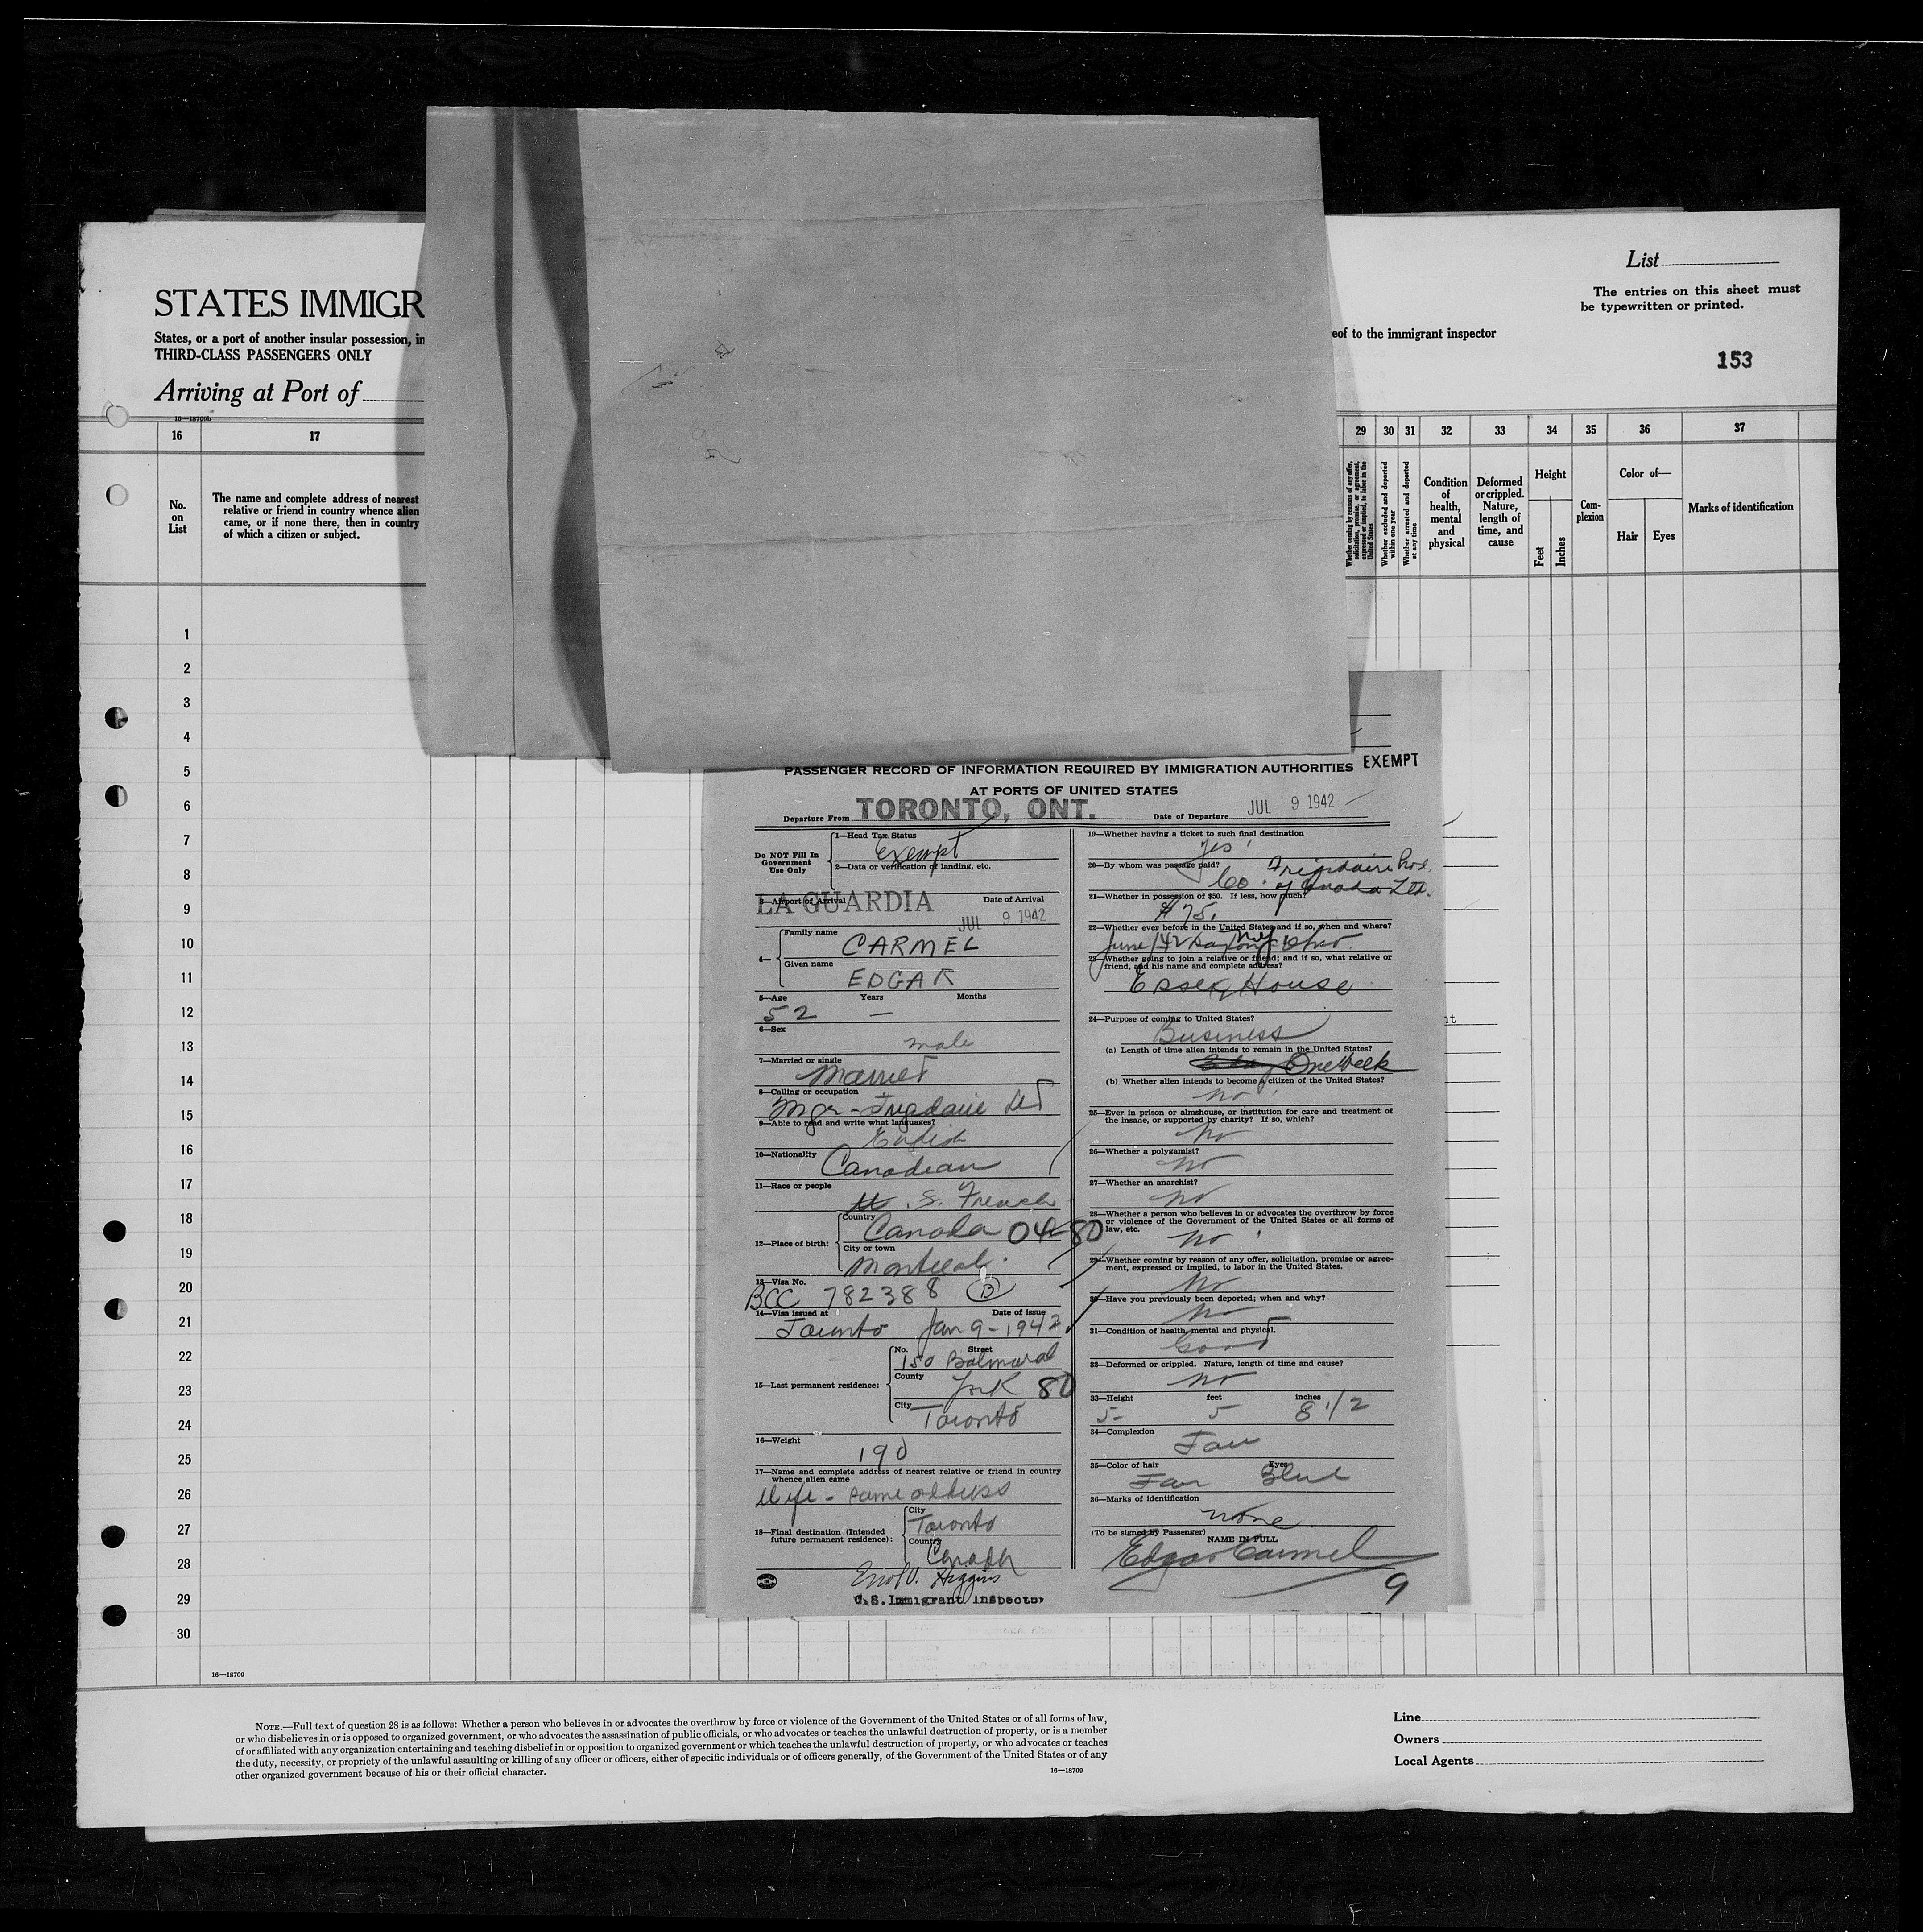 STATES IMMIGR
States, or a port of another insular possession, in
THIRD-CLASS PASSENGERS ONLY
Arriving at Port of
16—18709b
List
The entries on this sheet must
be typewritten or printed.
eof to the immigrant inspector
153
16 17 29 30 31 32 33 34 35 36 37
No.
on
List
The name and complete address of nearest
relative or friend in country whence alien
came, or if none there, then in country
of which a citizen or subject.
Whether coming by reasons of any offer,
solicitation, promise, or agreement,
expressed or implied, to labor in the
United States
Whether excluded and deported
within one year
Whether arrested and deported
at any time
Condition
of
health,
mental
and
physical
Deformed
or crippled.
Nature,
length of
time, and
cause
Height
Feet
Inches
Com-
plexion
Color of—
Hair Eyes
Marks of identification
1
2
3
4
5
6
7
8
9
10
11
12
13
14
15
16
17
18
19
20
21
22
23
24
25
26
27
28
29
30
PASSENGER RECORD OF INFORMATION REQUIRED BY IMMIGRATION AUTHORITIES EXEMPT
AT PORTS OF UNITED STATES
Departure From TORONTO, ONT. Date of Departure JUL 9 1942
Do NOT Fill In
Government
Use Only
1—Head Tax Status
Exempt
2—Data or verification of landing, etc.
3—Airport of Arrival Date of Arrival
LA GUARDIA JUL 9 1942
4—
Family name
CARMEL
Given name
EDGAR
5—Age Years Months
52 —
6—Sex
male
7—Married or single
Married
8—Calling or occupation
Mgr - Frigidaire Ltd
9—Able to read and write what languages?
English
10—Nationality
Canadian
11—Race or people
S. French
12—Place of birth:
Country
Canada 04-80
City or town
Montreal
13—Visa No.
BCC 782388 B
14—Visa issued at Date of issue
Toronto Jan 9-1942
15—Last permanent residence:
No. Street
150 Balmoral
County
York 80
City
Toronto
16—Weight
190
17—Name and complete address of nearest relative or friend in country
whence alien came
Wife - same address
18—Final destination (Intended
future permanent residence):
City
Toronto
Country
Canada
Higgins
U.S. Immigrant Inspector
19—Whether having a ticket to such final destination
yes
20—By whom was passage paid?
Co. Frigidaire Prod.
of Canada Ltd.
21—Whether in possession of $50. If less, how much?
$75.
22—Whether ever before in the United States and if so, when and where?
June/42 Dayton Ohio
23—Whether going to join a relative or friend; and if so, what relative or
friend, and his name and complete address?
Essex House
24—Purpose of coming to United States?
Business
(a) Length of time alien intends to remain in the United States?
One Week
(b) Whether alien intends to become a citizen of the United States?
no
25—Ever in prison or almshouse, or institution for care and treatment of
the insane, or supported by charity? If so, which?
no
26—Whether a polygamist?
no
27—Whether an anarchist?
no
28—Whether a person who believes in or advocates the overthrow by force
or violence of the Government of the United States or all forms of
law, etc.
no
29—Whether coming by reason of any offer, solicitation, promise or agree-
ment, expressed or implied, to labor in the United States.
no
30—Have you previously been deported; when and why?
no
31—Condition of health, mental and physical.
Good
32—Deformed or crippled. Nature, length of time and cause?
no
33—Height feet inches
5- 5 8 1/2
34—Complexion
Fair
35—Color of hair Eyes
Fair Blue
36—Marks of identification
none
(To be signed by Passenger)
NAME IN FULL
Edgar Carmel
9
16—18709
NOTE.—Full text of question 28 is as follows: Whether a person who believes in or advocates the overthrow by force or violence of the Government of the United States or of all forms of law,
or who disbelieves in or is opposed to organized government, or who advocates the assassination of public officials, or who advocates or teaches the unlawful destruction of property, or is a member
of or affiliated with any organization entertaining and teaching disbelief in or opposition to organized government or which teaches the unlawful destruction of property, or who advocates or teaches
the duty, necessity, or propriety of the unlawful assaulting or killing of any officer or officers, either of specific individuals or of officers generally, of the Government of the United States or of any
other organized government because of his or their official character.
16—18709
Line
Owners
Local Agents